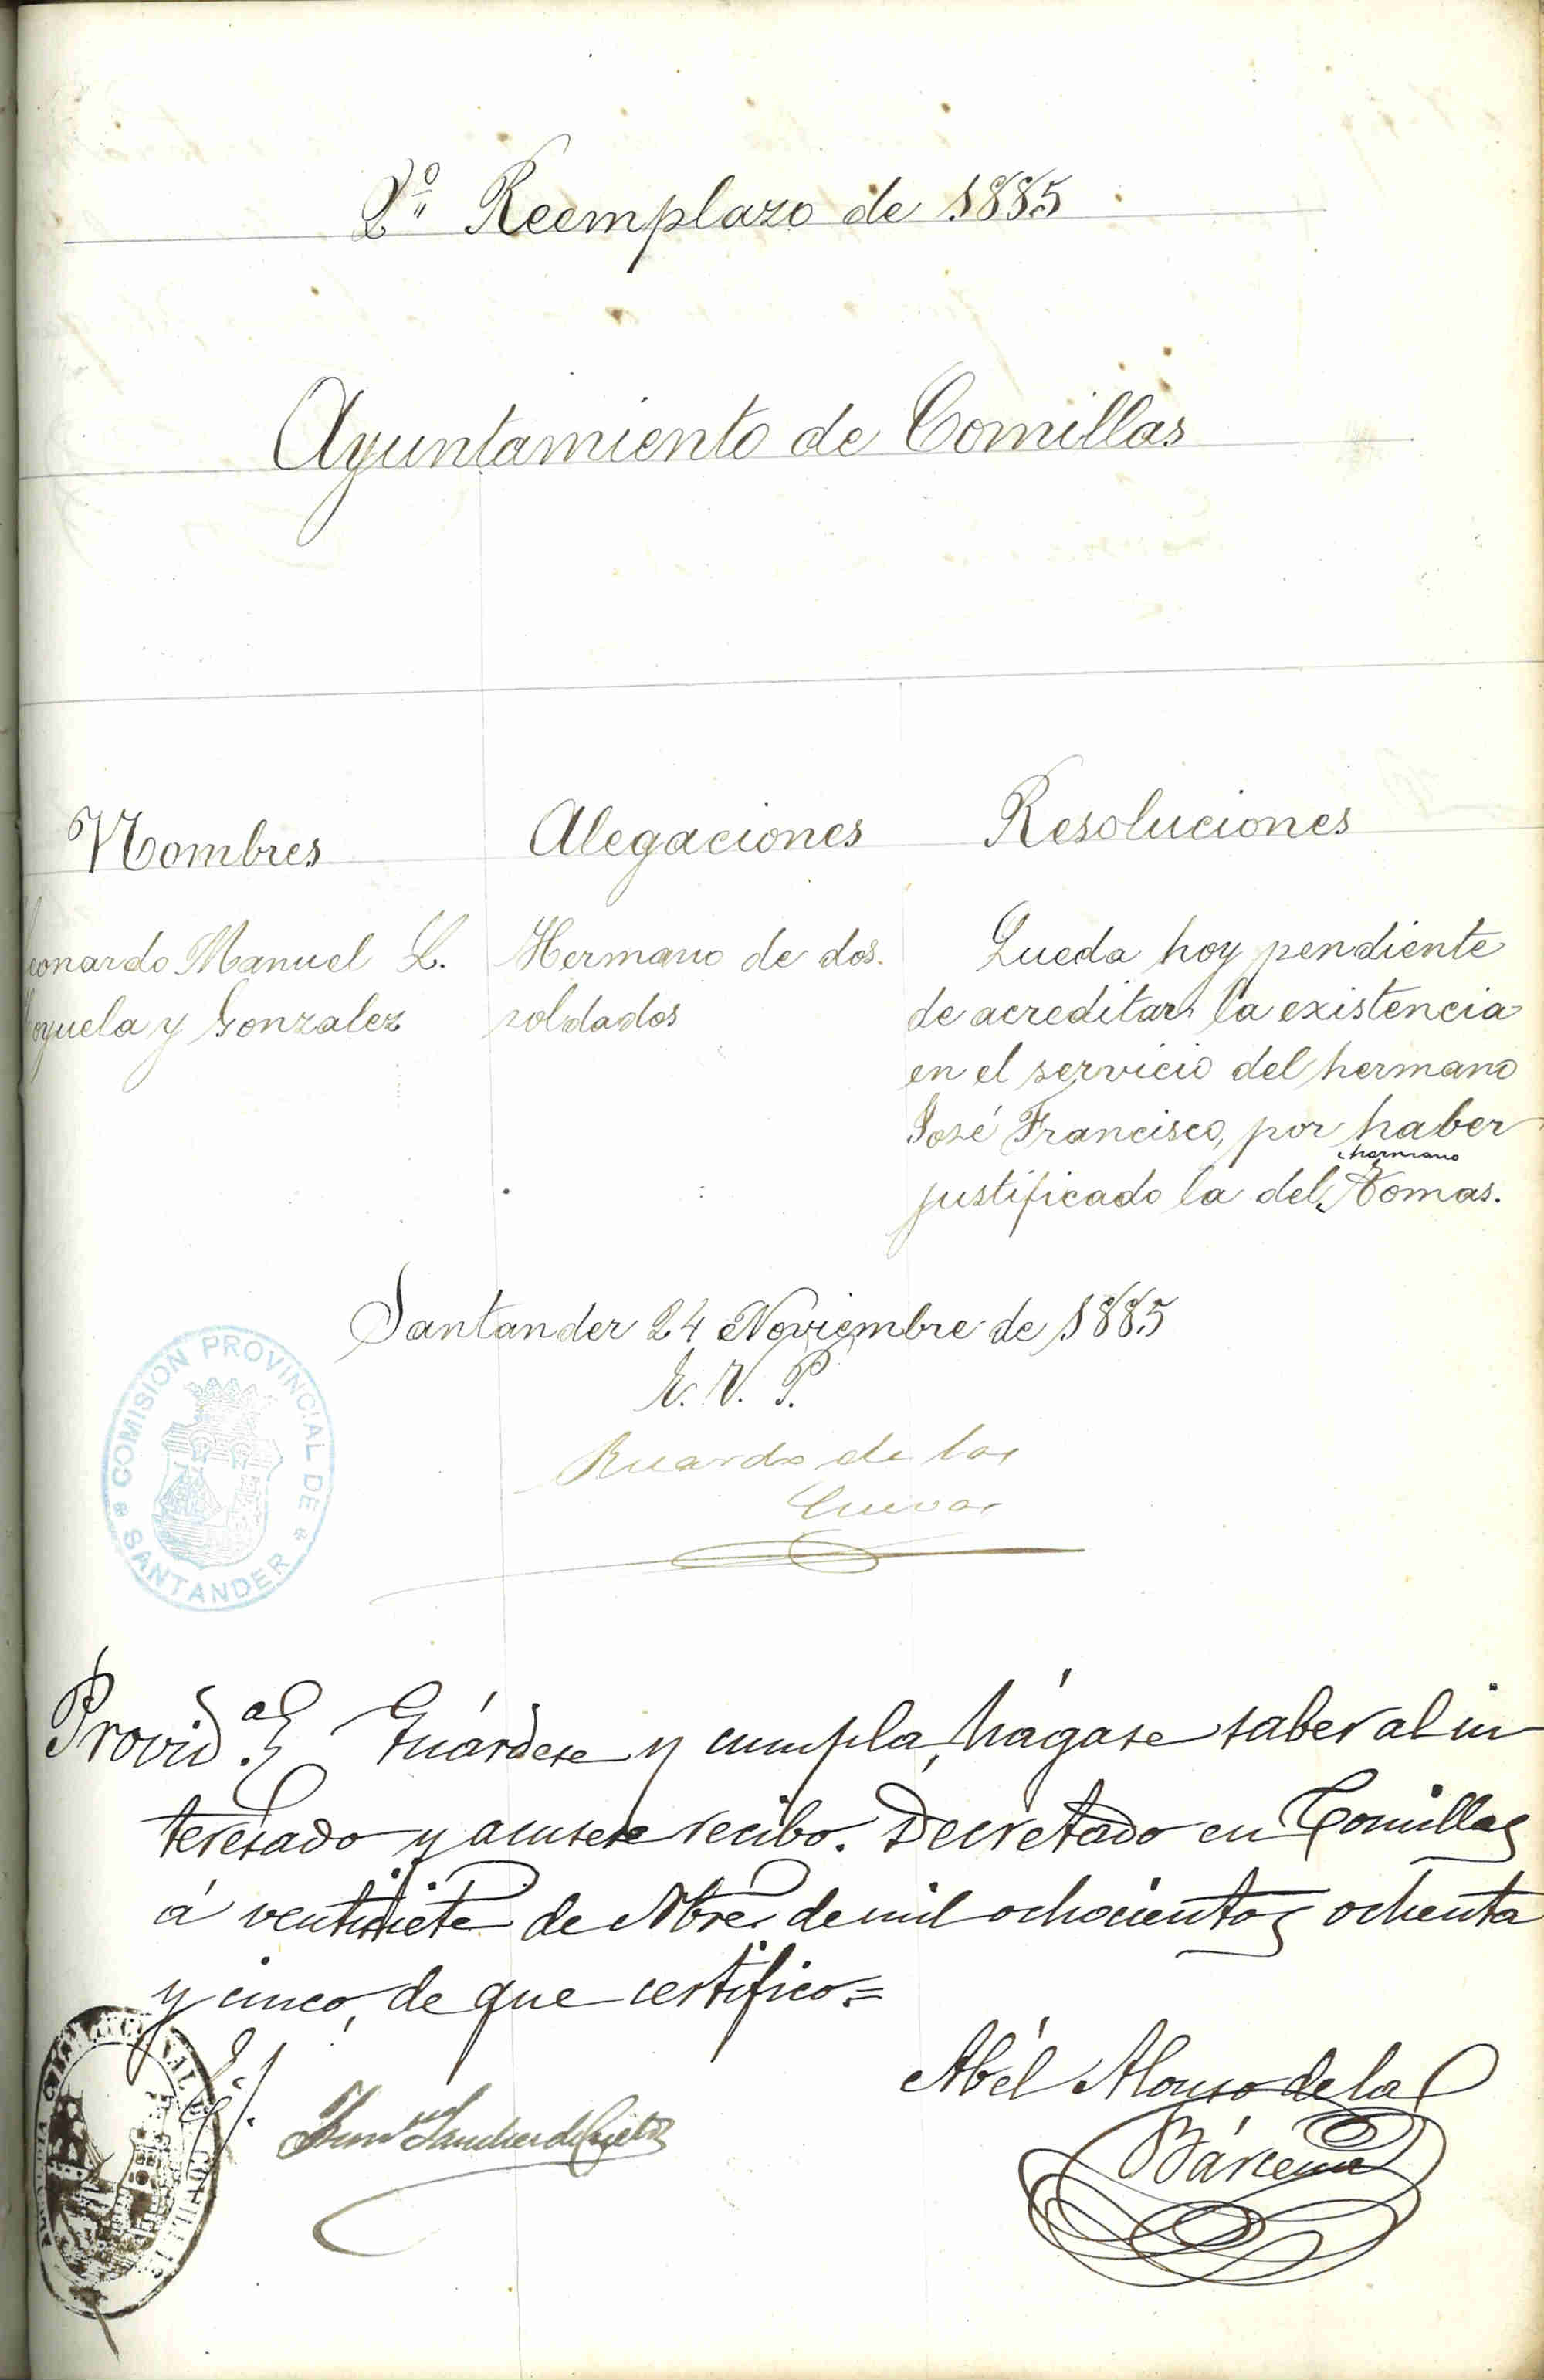 2º Reemplazo de 1885
Ayuntamiento de Comillas
Nombres
Alegaciones
Resoluciones
Leonardo Manuel L.
y Gonzalez
Hermano de dos
soldados
Queda hoy pendiente
de acreditar la existencia
en el servicio del hermano
José Francisco, por haber
justificado la del hermano Tomas.
Santander 24 Noviembre de 1885
E. V. P.
Ricardo de las
Cuevas
COMISION PROVINCIAL DE SANTANDER
Provid.ª Guárdese y cumpla, hágase saber al in
teresado y acusese recibo. Decretado en Comillas
á ventisiete de Nbre. de mil ochocientos ochenta
y cinco, de que certifico=
Abél Alonso de la
Bárcena
Sanchez de